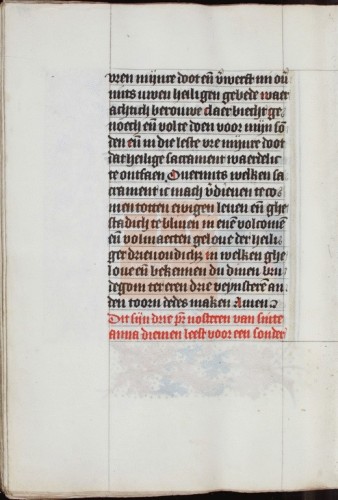 vren mijnre doot eñ v̄werft mi ou̅
mits uwen heiligen gebede waer
achtich berouwe claer biecht ge
noech eñ vol te doen voor mijn sō
den eñ in die leste vre mijnre doot
dat heilige sacrament waerdelic
te ontfaen Ouermits welken sa
crament ic mach v̄dienen te co
men totten ewigen leuen eñ ghe
stadich te bliuen in enē volcomē
eñ volmaecten geloue der heili
ger drieuoudich in welken ghe
loue eñ bekennen du dinen bru
degom ter eren drie veynsteren an
den toorn dedes maken Amen
Dit sijn drie pr̄ nosteren van sinte
anna diemen leest voor een sonder